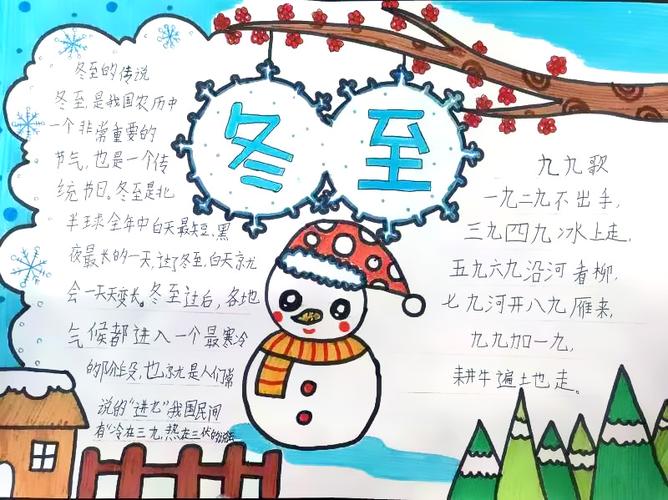 冬至
冬至的传说
冬至是我国农历中
一个非常重要的
节气,也是一个传
统节日。冬至是北
半球全年中白天最短、黑
夜最长的一天,过了冬至,白天就
会一天天变长。冬至过后,各地
气候都进入一个最寒冷
的阶段,也就是人们常
说的"进九"我国民间
有"冷在三九,热在三伏的说法
九九歌
一九二九不出手,
三九四九冰上走,
五九六九沿河看柳,
七九河开八九雁来,
九九加一九,
耕牛遍土也走。